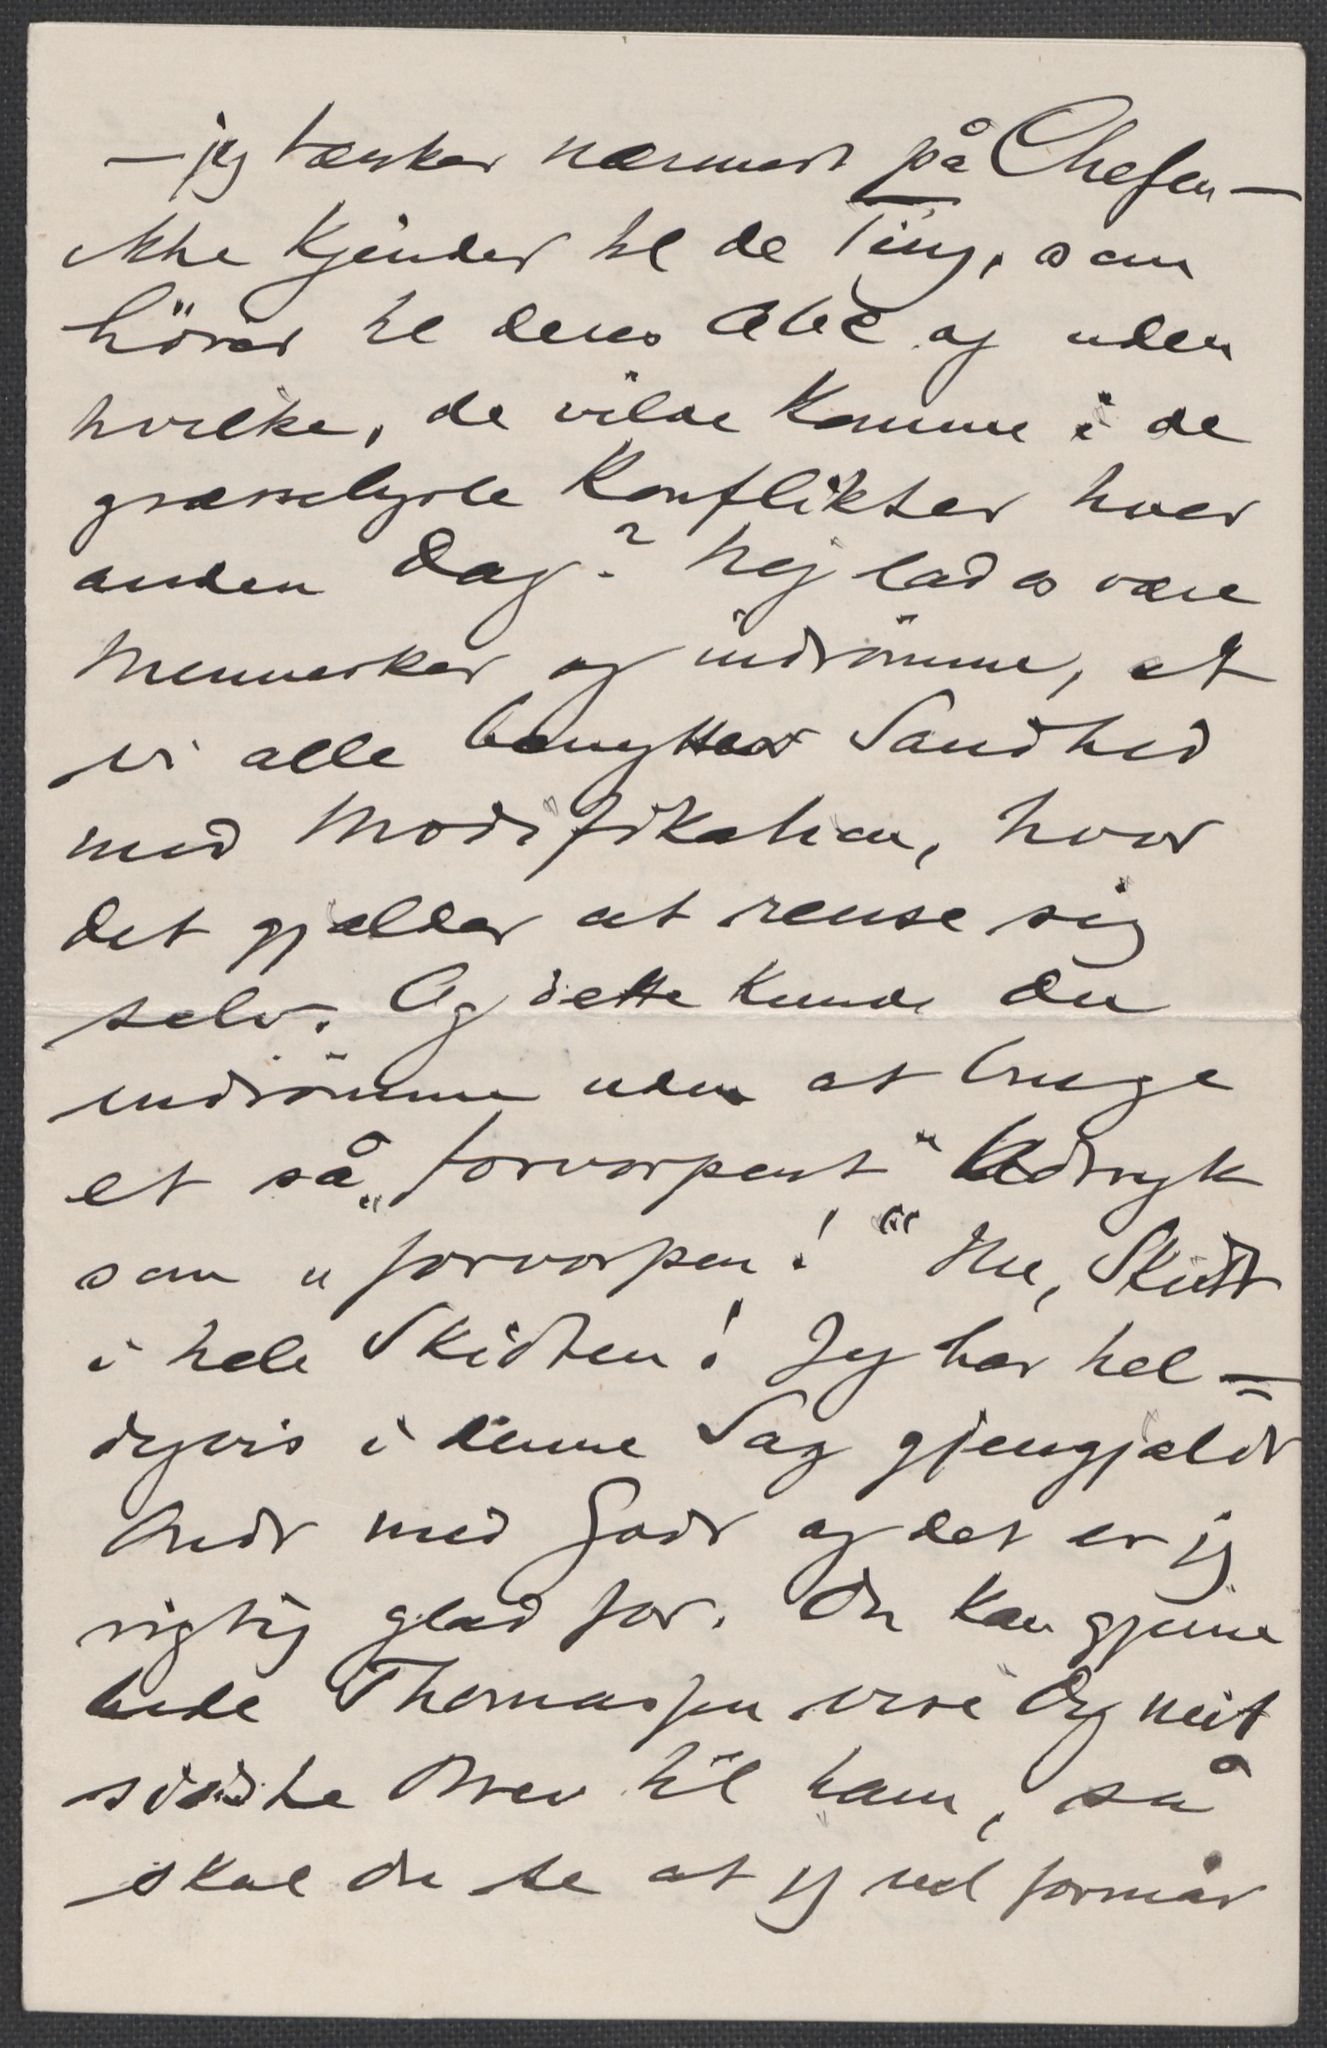 — jeg tænker nærmest på Chefen —
ikke kjender til de Ting, som
hörer til deres Abc og uden
hvilke, de vilde komme i de
græsseligste Konflikter hver
anden Dag? Nej lad os være
Mennesker og indrömme, at
vi alle benytter Sandhed
med Modifikation, hvor
det gjælder at rense sig
selv. Og dette kunde Du
indrömme uden at bruge
et så „forvorpent" Udtryk
som „forvorpen!" Nu, Skidt
i hele Skidten! Jeg har hel-
digvis i denne Sag gjengjældt
Ondt med Godt og det er jeg
rigtig glad for. Du kan gjerne
bede Thomassen vise Dig mit
sidste Brev til ham, så
skal Du se at jeg vel formår